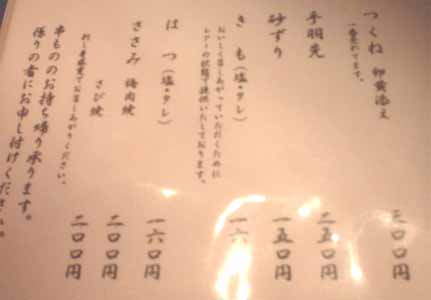 つくね 卵黄添え 三〇〇円
一番売れてます。
手羽先 二五〇円
砂ずり 一五〇円
きも(塩・タレ) 一六
おいしく召しあがっていただくために
レアーの状態で提供いたしております。
はつ(塩・タレ) 一六〇円
ささみ 梅肉焼 二〇〇円
さび焼 二〇〇円
わし
串もののお持ち帰り承ります。
係りの者にお申し付けください。